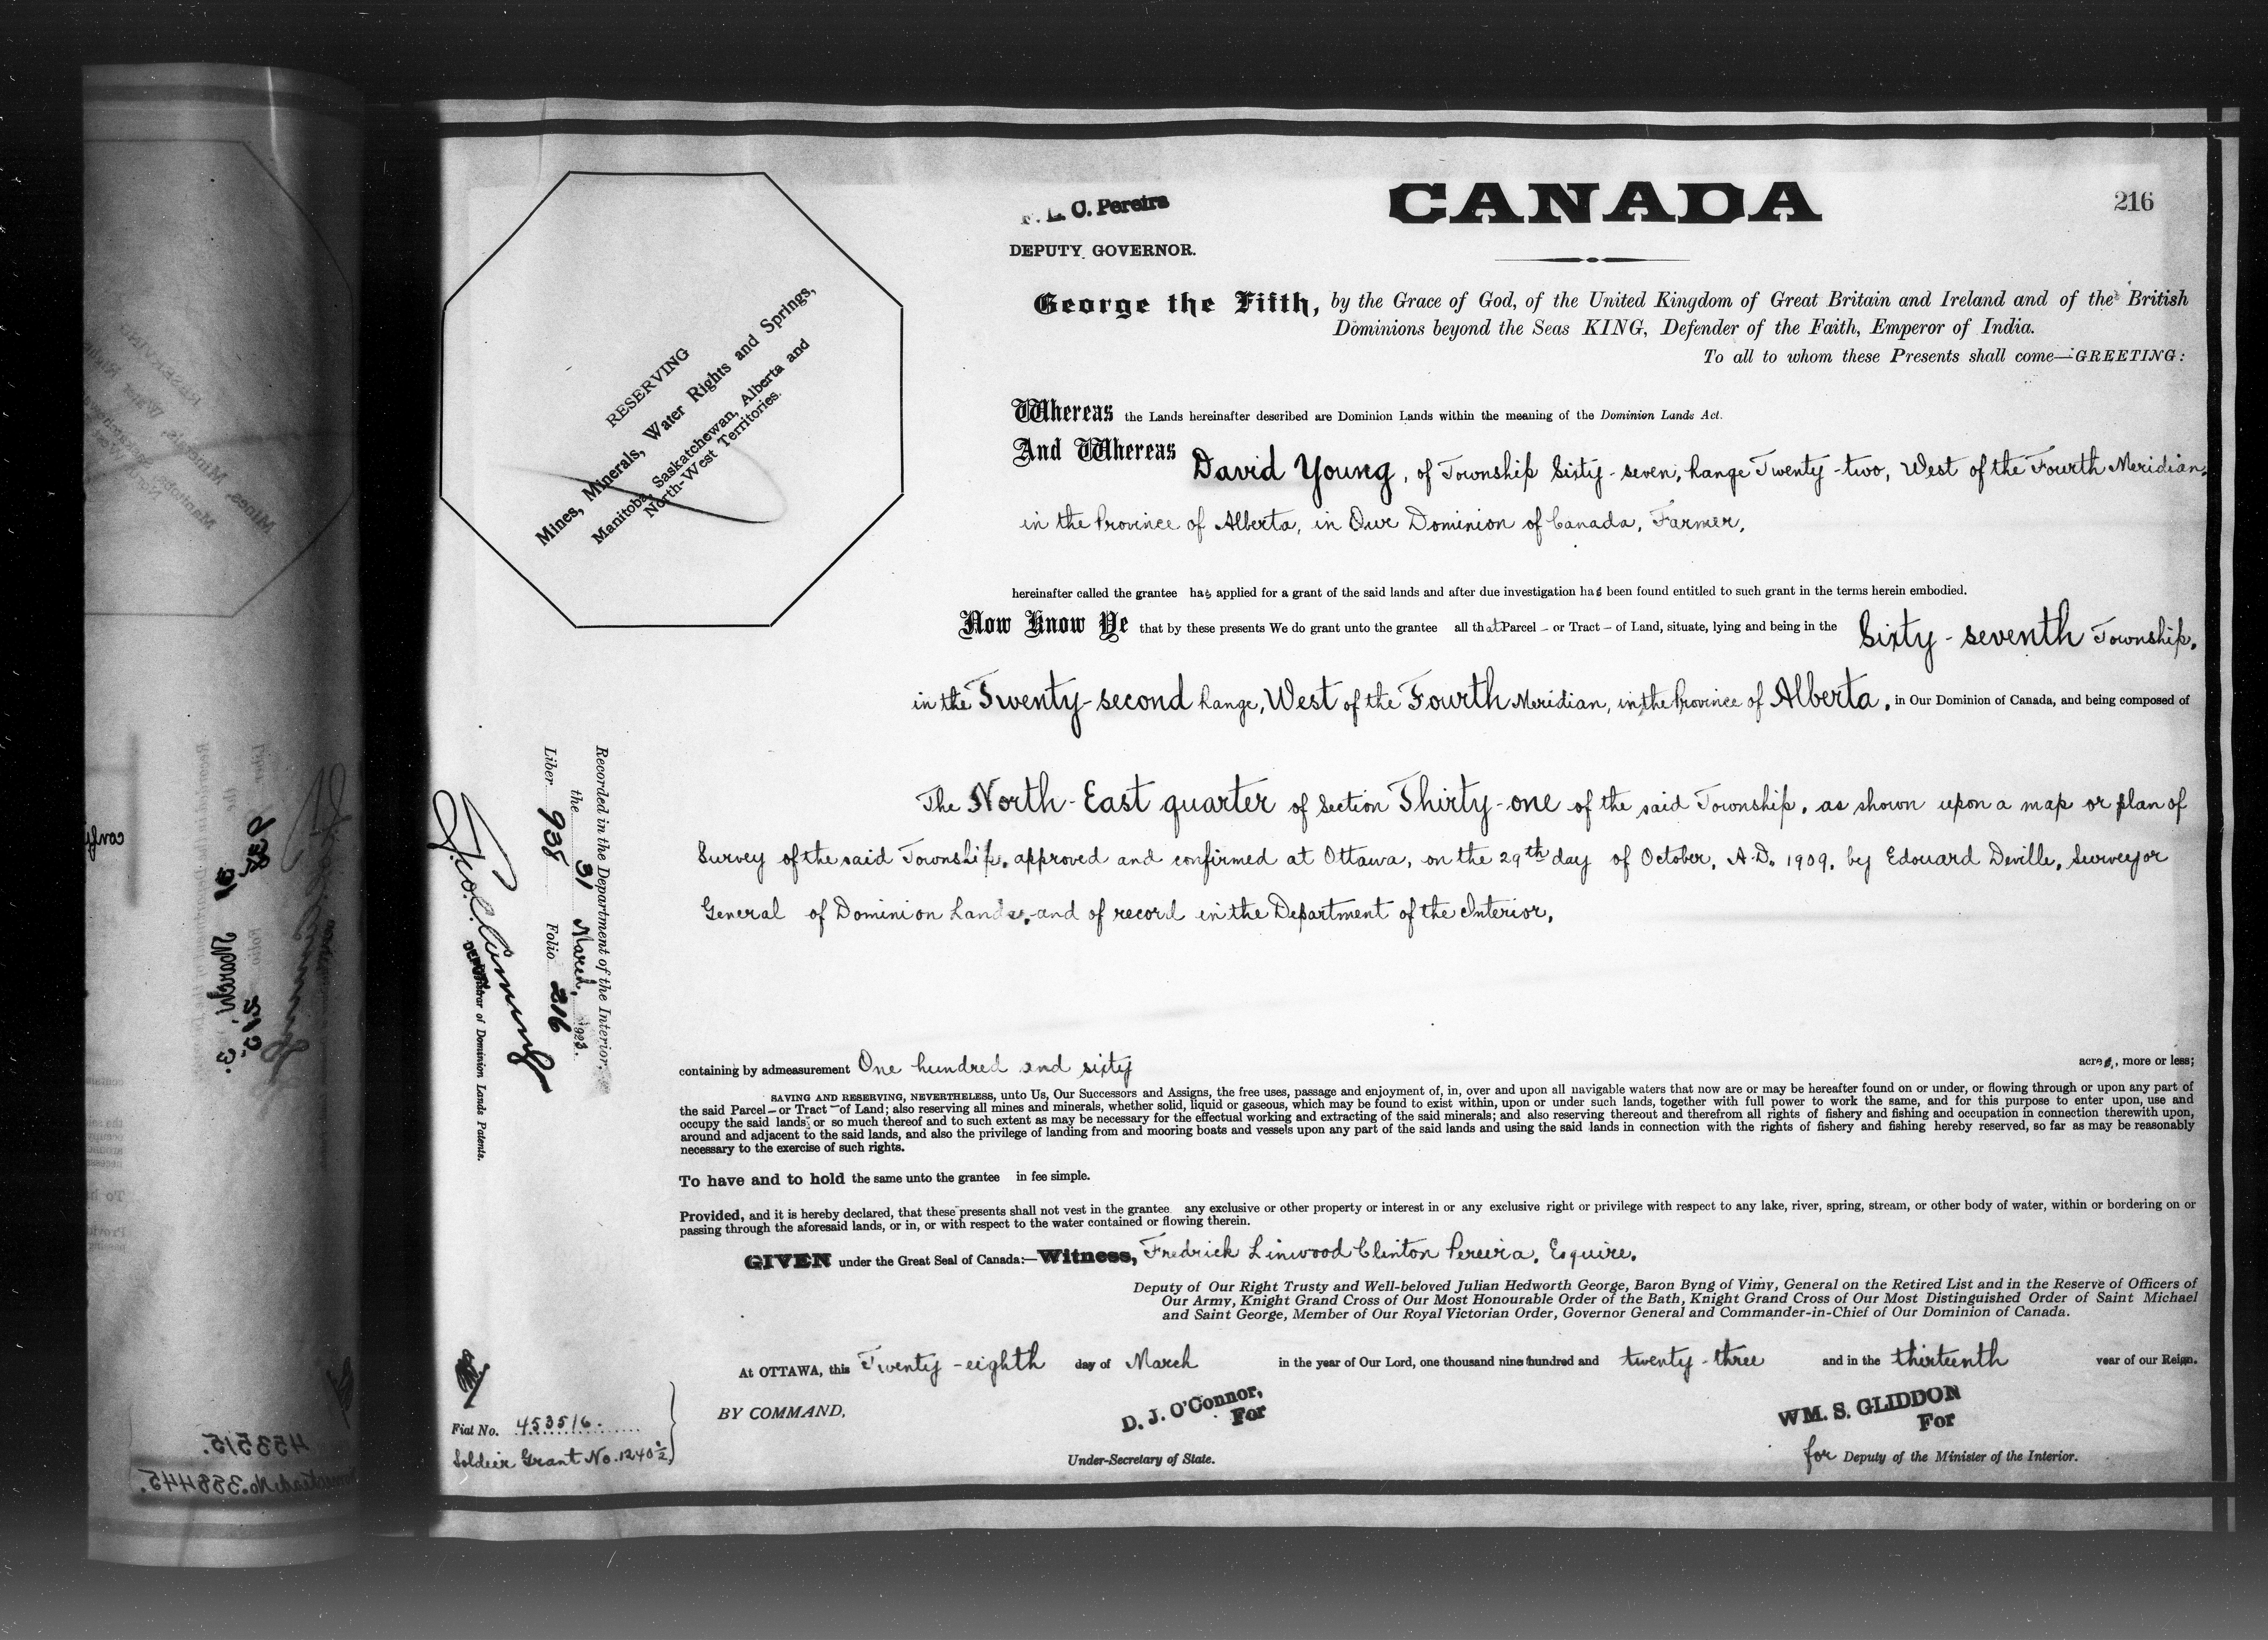 CANADA
216
L. C. Pereira
DEPUTY GOVERNOR.
George the Fifth, by the Grace of God, of the United Kingdom of Great Britain and Ireland and of the British
Dominions beyond the Seas KING, Defender of the Faith, Emperor of India.
To all to whom these Presents shall come—GREETING:
RESERVING
Mines, Minerals, Water Rights and Springs,
Manitoba, Saskatchewan, Alberta and
North-West Territories.
Whereas the Lands hereinafter described are Dominion Lands within the meaning of the Dominion Lands Act.
And Whereas David Young, of Township Sixty-seven, Range Twenty-two, West of the Fourth Meridian,
in the Province of Alberta, in Our Dominion of Canada, Farmer,
hereinafter called the grantee has applied for a grant of the said lands and after due investigation has been found entitled to such grant in the terms herein embodied.
Now Know Ye that by these presents We do grant unto the grantee all that Parcel – or Tract – of Land, situate, lying and being in the Sixty-seventh Township,
in the Twenty-second Range, West of the Fourth Meridian, in the Province of Alberta, in Our Dominion of Canada, and being composed of
The North-East quarter of Section Thirty-one of the said Township, as shown upon a map or plan of
Survey of the said Township, approved and confirmed at Ottawa, on the 29th day of October, A.D. 1909, by Edouard Deville, Surveyor
General of Dominion Lands, and of record in the Department of the Interior,
containing by admeasurement One hundred and sixty acres, more or less;
SAVING AND RESERVING, NEVERTHELESS, unto Us, Our Successors and Assigns, the free uses, passage and enjoyment of, in, over and upon all navigable waters that now are or may be hereafter found on or under, or flowing through or upon any part of
the said Parcel – or Tract – of Land; also reserving all mines and minerals, whether solid, liquid or gaseous, which may be found to exist within, upon or under such lands, together with full power to work the same, and for this purpose to enter upon, use and
occupy the said lands, or so much thereof and to such extent as may be necessary for the effectual working and extracting of the said minerals; and also reserving thereout and therefrom all rights of fishery and fishing and occupation in connection therewith upon,
around and adjacent to the said lands, and also the privilege of landing from and mooring boats and vessels upon any part of the said lands and using the said lands in connection with the rights of fishery and fishing hereby reserved, so far as may be reasonably
necessary to the exercise of such rights.
To have and to hold the same unto the grantee in fee simple.
Provided, and it is hereby declared, that these presents shall not vest in the grantee any exclusive or other property or interest in or any exclusive right or privilege with respect to any lake, river, spring, stream, or other body of water, within or bordering on or
passing through the aforesaid lands, or in, or with respect to the water contained or flowing therein.
GIVEN under the Great Seal of Canada:—Witness, Fredrick Linwood Clinton Pereira, Esquire,
Deputy of Our Right Trusty and Well-beloved Julian Hedworth George, Baron Byng of Vimy, General on the Retired List and in the Reserve of Officers of
Our Army, Knight Grand Cross of Our Most Honourable Order of the Bath, Knight Grand Cross of Our Most Distinguished Order of Saint Michael
and Saint George, Member of Our Royal Victorian Order, Governor General and Commander-in-Chief of Our Dominion of Canada.
At OTTAWA, this Twenty-eighth day of March in the year of Our Lord, one thousand nine hundred and twenty-three and in the thirteenth year of our Reign.
BY COMMAND,
D. J. O'Connor,
For
Under-Secretary of State.
WM. S. GLIDDON
For
for Deputy of the Minister of the Interior.
Recorded in the Department of the Interior,
the 31 March, 1923.
Liber 938 Folio 216
Registrar of Dominion Lands Patents.
Fiat No. 453516.
Soldier Grant No. 1240½
453515.
Homestead No. 358445.